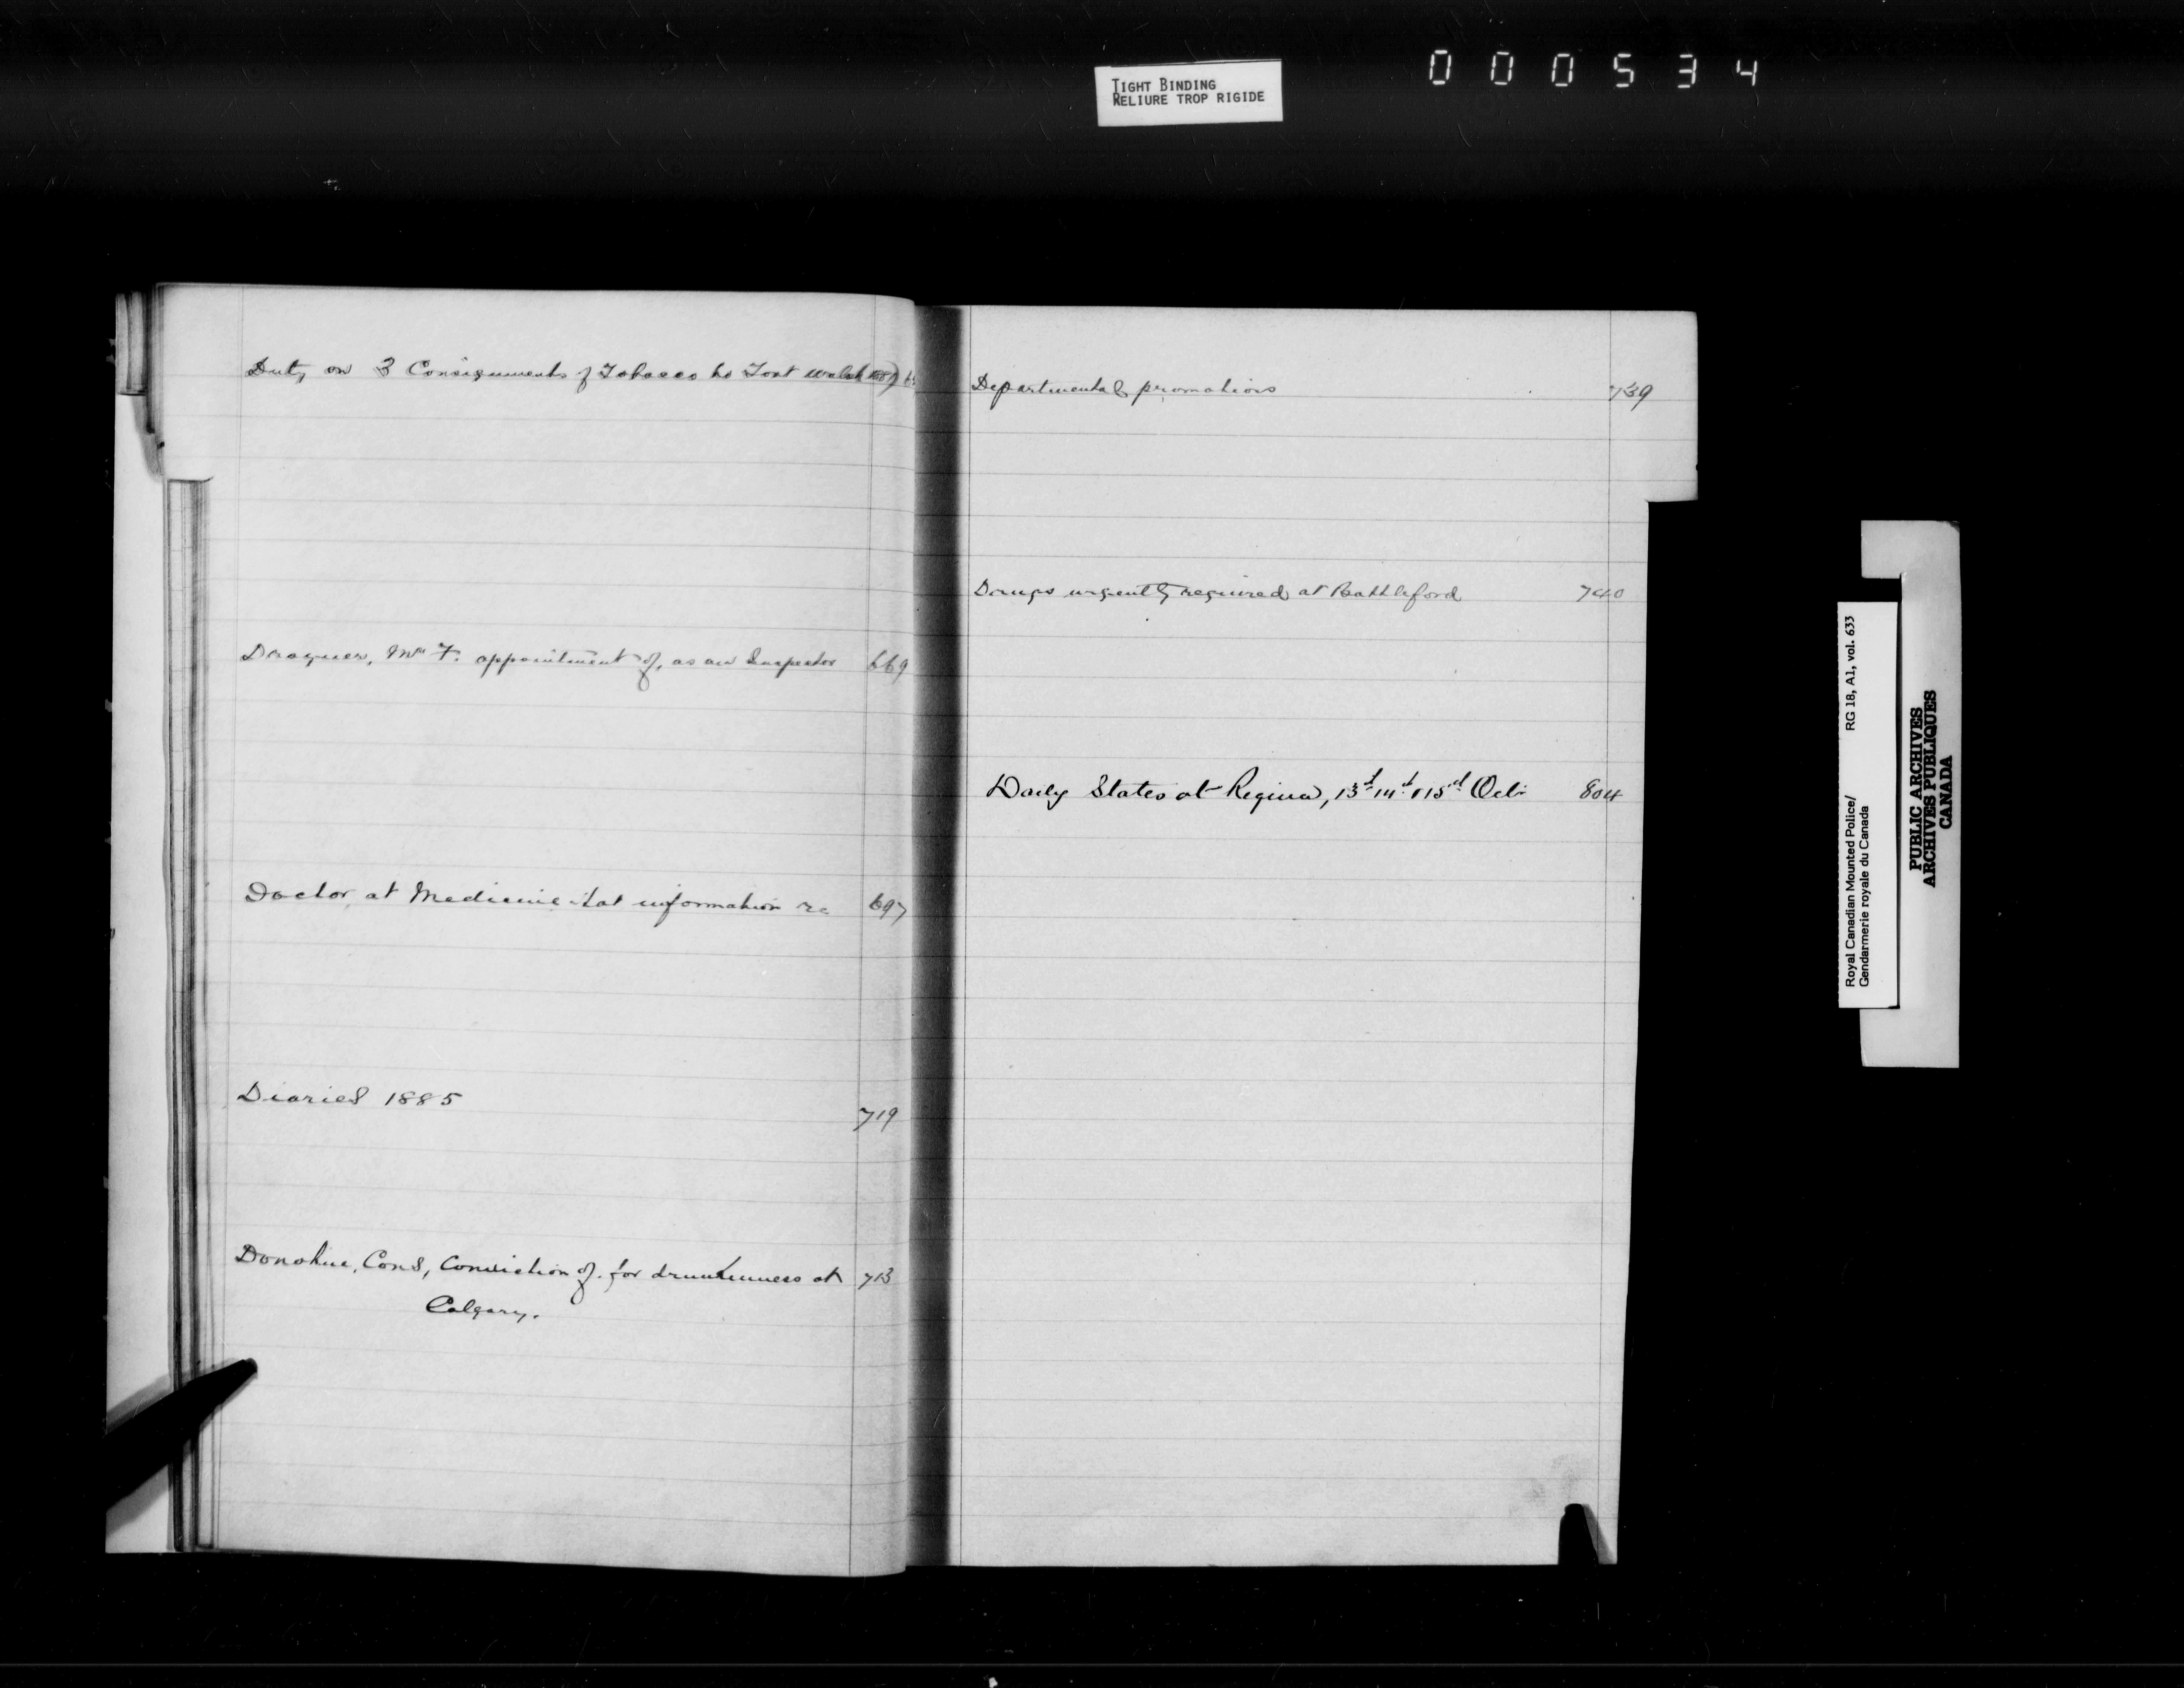 TIGHT BINDING
RELIURE TROP RIGIDE
000534
Duty on 3 Consignments of Tobacco to Fort Walsh
, Mr F. appointment of, as an Inspector 669
Doctor at Medicine Hat information re 697
Diaries 1885
719
Donohue, Cons, Conviction of. for drunkenness at 713
Calgary.
Departmental promotions 739
Drugs urgently required at Battleford 740
Daily States at Regina, 13d 14d & 15d Octr 804
Royal Canadian Mounted Police/ RG 18, A1, vol. 633
Gendarmerie royale du Canada
PUBLIC ARCHIVES
ARCHIVES PUBLIQUES
CANADA